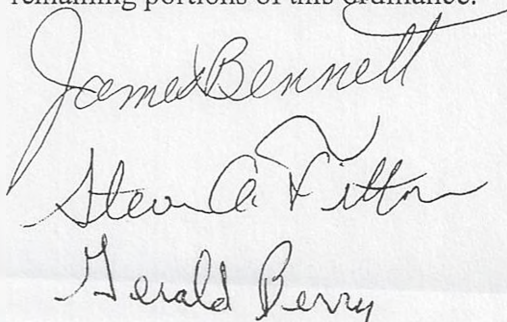 remaining portions of this ordinance.
James Bennett
Steven A. Fitton
Gerald Berry